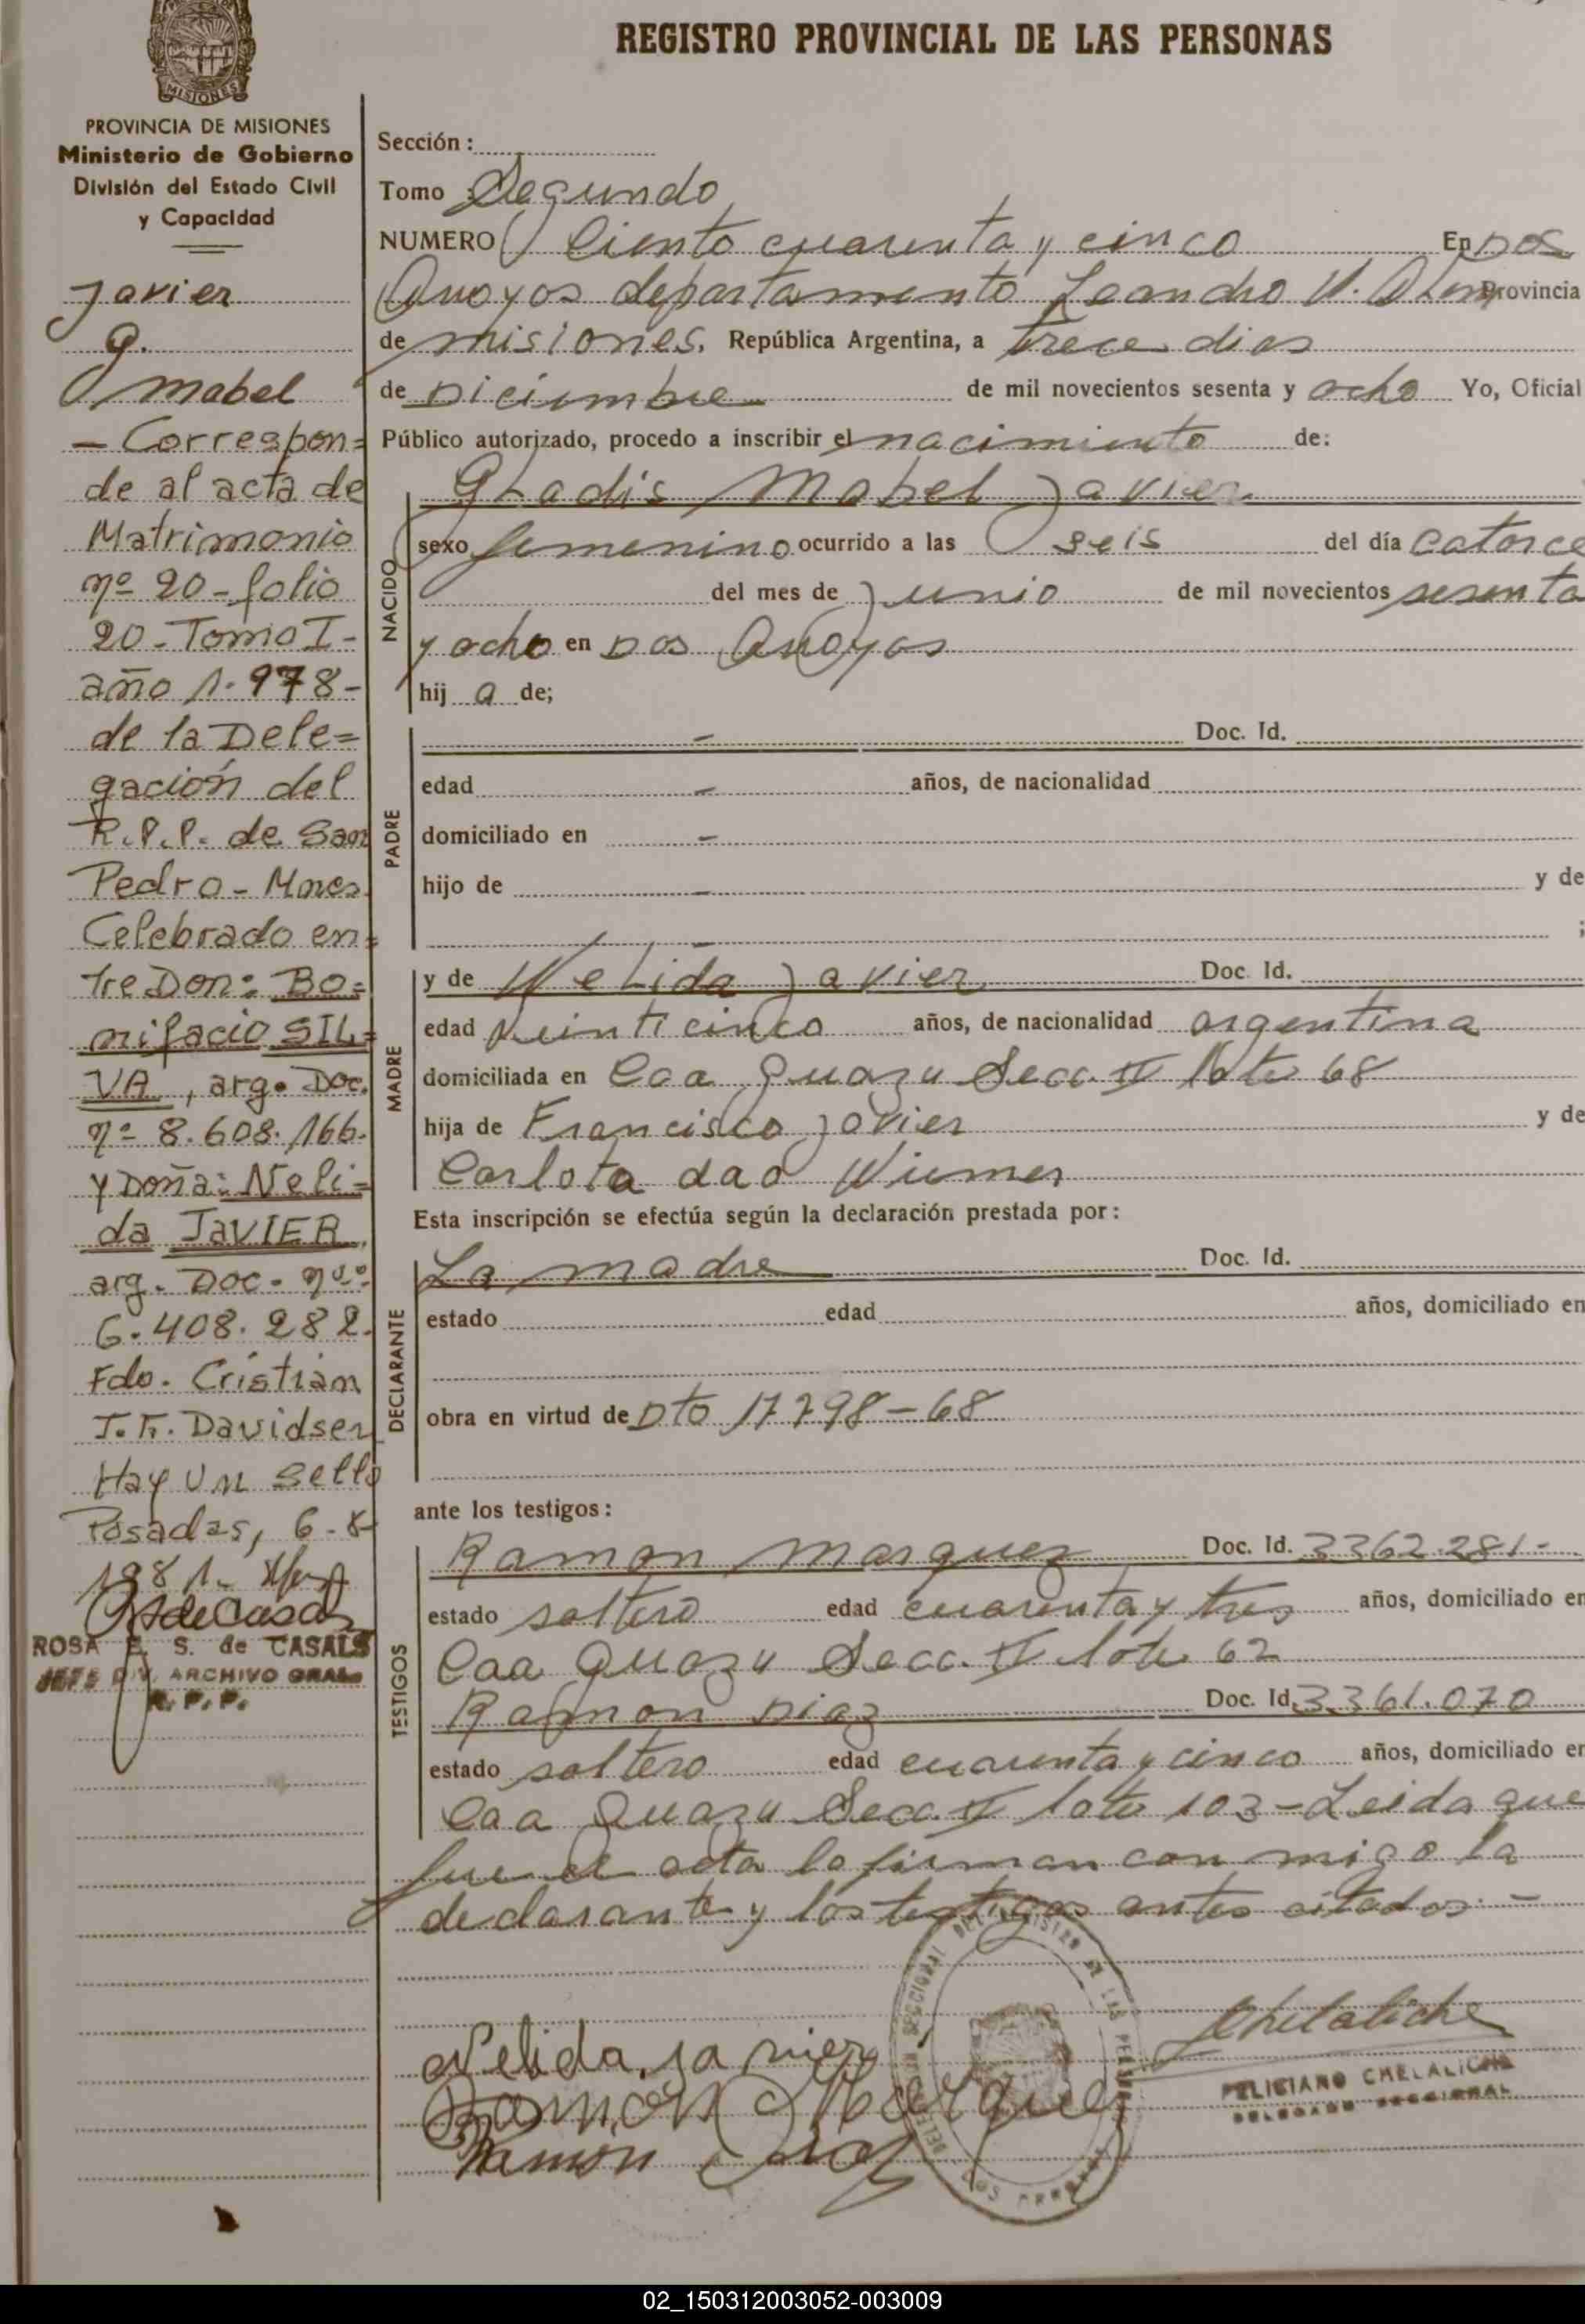 REGISTRO PROVINCIAL DE LAS PERSONAS
MISIONES
PROVINCIA DE MISIONES
Ministerio de Gobierno
División del Estado Civil
y Capacidad
Javier
G.
Mabel
- Correspon=
de al acta de
Matrimonio
nº 20 - folio
20 - Tomo I -
año 1.978 -
de la Dele=
gación del
R.P.P. de San
Pedro - Mnes.
Celebrado en=
tre Don: BO=
nifacio SIL=
VA, arg. Doc.
nº 8.608.166.
y Doña: Neli=
da JAVIER,
arg. Doc. nº
6.408.282.
Fdo. Cristian
J.F. Davidsen
Hay un sello
Posadas, 6-8-
1981-
ROSA E. S. de CASALS
JEFE DIV. ARCHIVO GRAL.
R. P. P.
Sección :
Tomo Segundo
NUMERO Ciento cuarenta y cinco En Dos
Arroyos departamento Leandro N. Alem Provincia
de Misiones. República Argentina, a trece dias
de Diciembre de mil novecientos sesenta y ocho Yo, Oficial
Público autorizado, procedo a inscribir el nacimiento de:
Gladis Mabel Javier
NACIDO
sexo femenino ocurrido a las seis del día catorce
del mes de Junio de mil novecientos sesenta
y ocho en Dos Arroyos
hij a de;
PADRE
- Doc. Id.
edad - años, de nacionalidad
domiciliado en -
hijo de - y de
- ;
MADRE
y de Nelida Javier Doc. Id.
edad veinticinco años, de nacionalidad argentina
domiciliada en Caa Guazu Secc. II lote 68
hija de Francisco Javier y de
Carlota dao
Esta inscripción se efectúa según la declaración prestada por :
DECLARANTE
La madre Doc. Id.
estado edad años, domiciliado en
obra en virtud de Dto 17798-68
ante los testigos :
TESTIGOS
Ramon Marquez Doc. Id. 3362.281-
estado soltero edad cuarenta y tres años, domiciliado en
Caa Guazu Secc. II lote 62
Ramon Diaz Doc. Id. 3.361.070
estado soltero edad cuarenta y cinco años, domiciliado en
Caa Guazu Secc. II lote 103 - Leida que
fue el acta la firman con migo la
declarante y los testigos antes citados. -
Nelida javier
Ramon Marquez
Ramon Diaz
Chelaliche
FELICIANO CHELALICHE
DELEGADO SECCIONAL
02_150312003052-003009